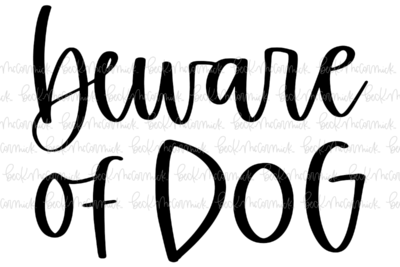 beware
of DOG